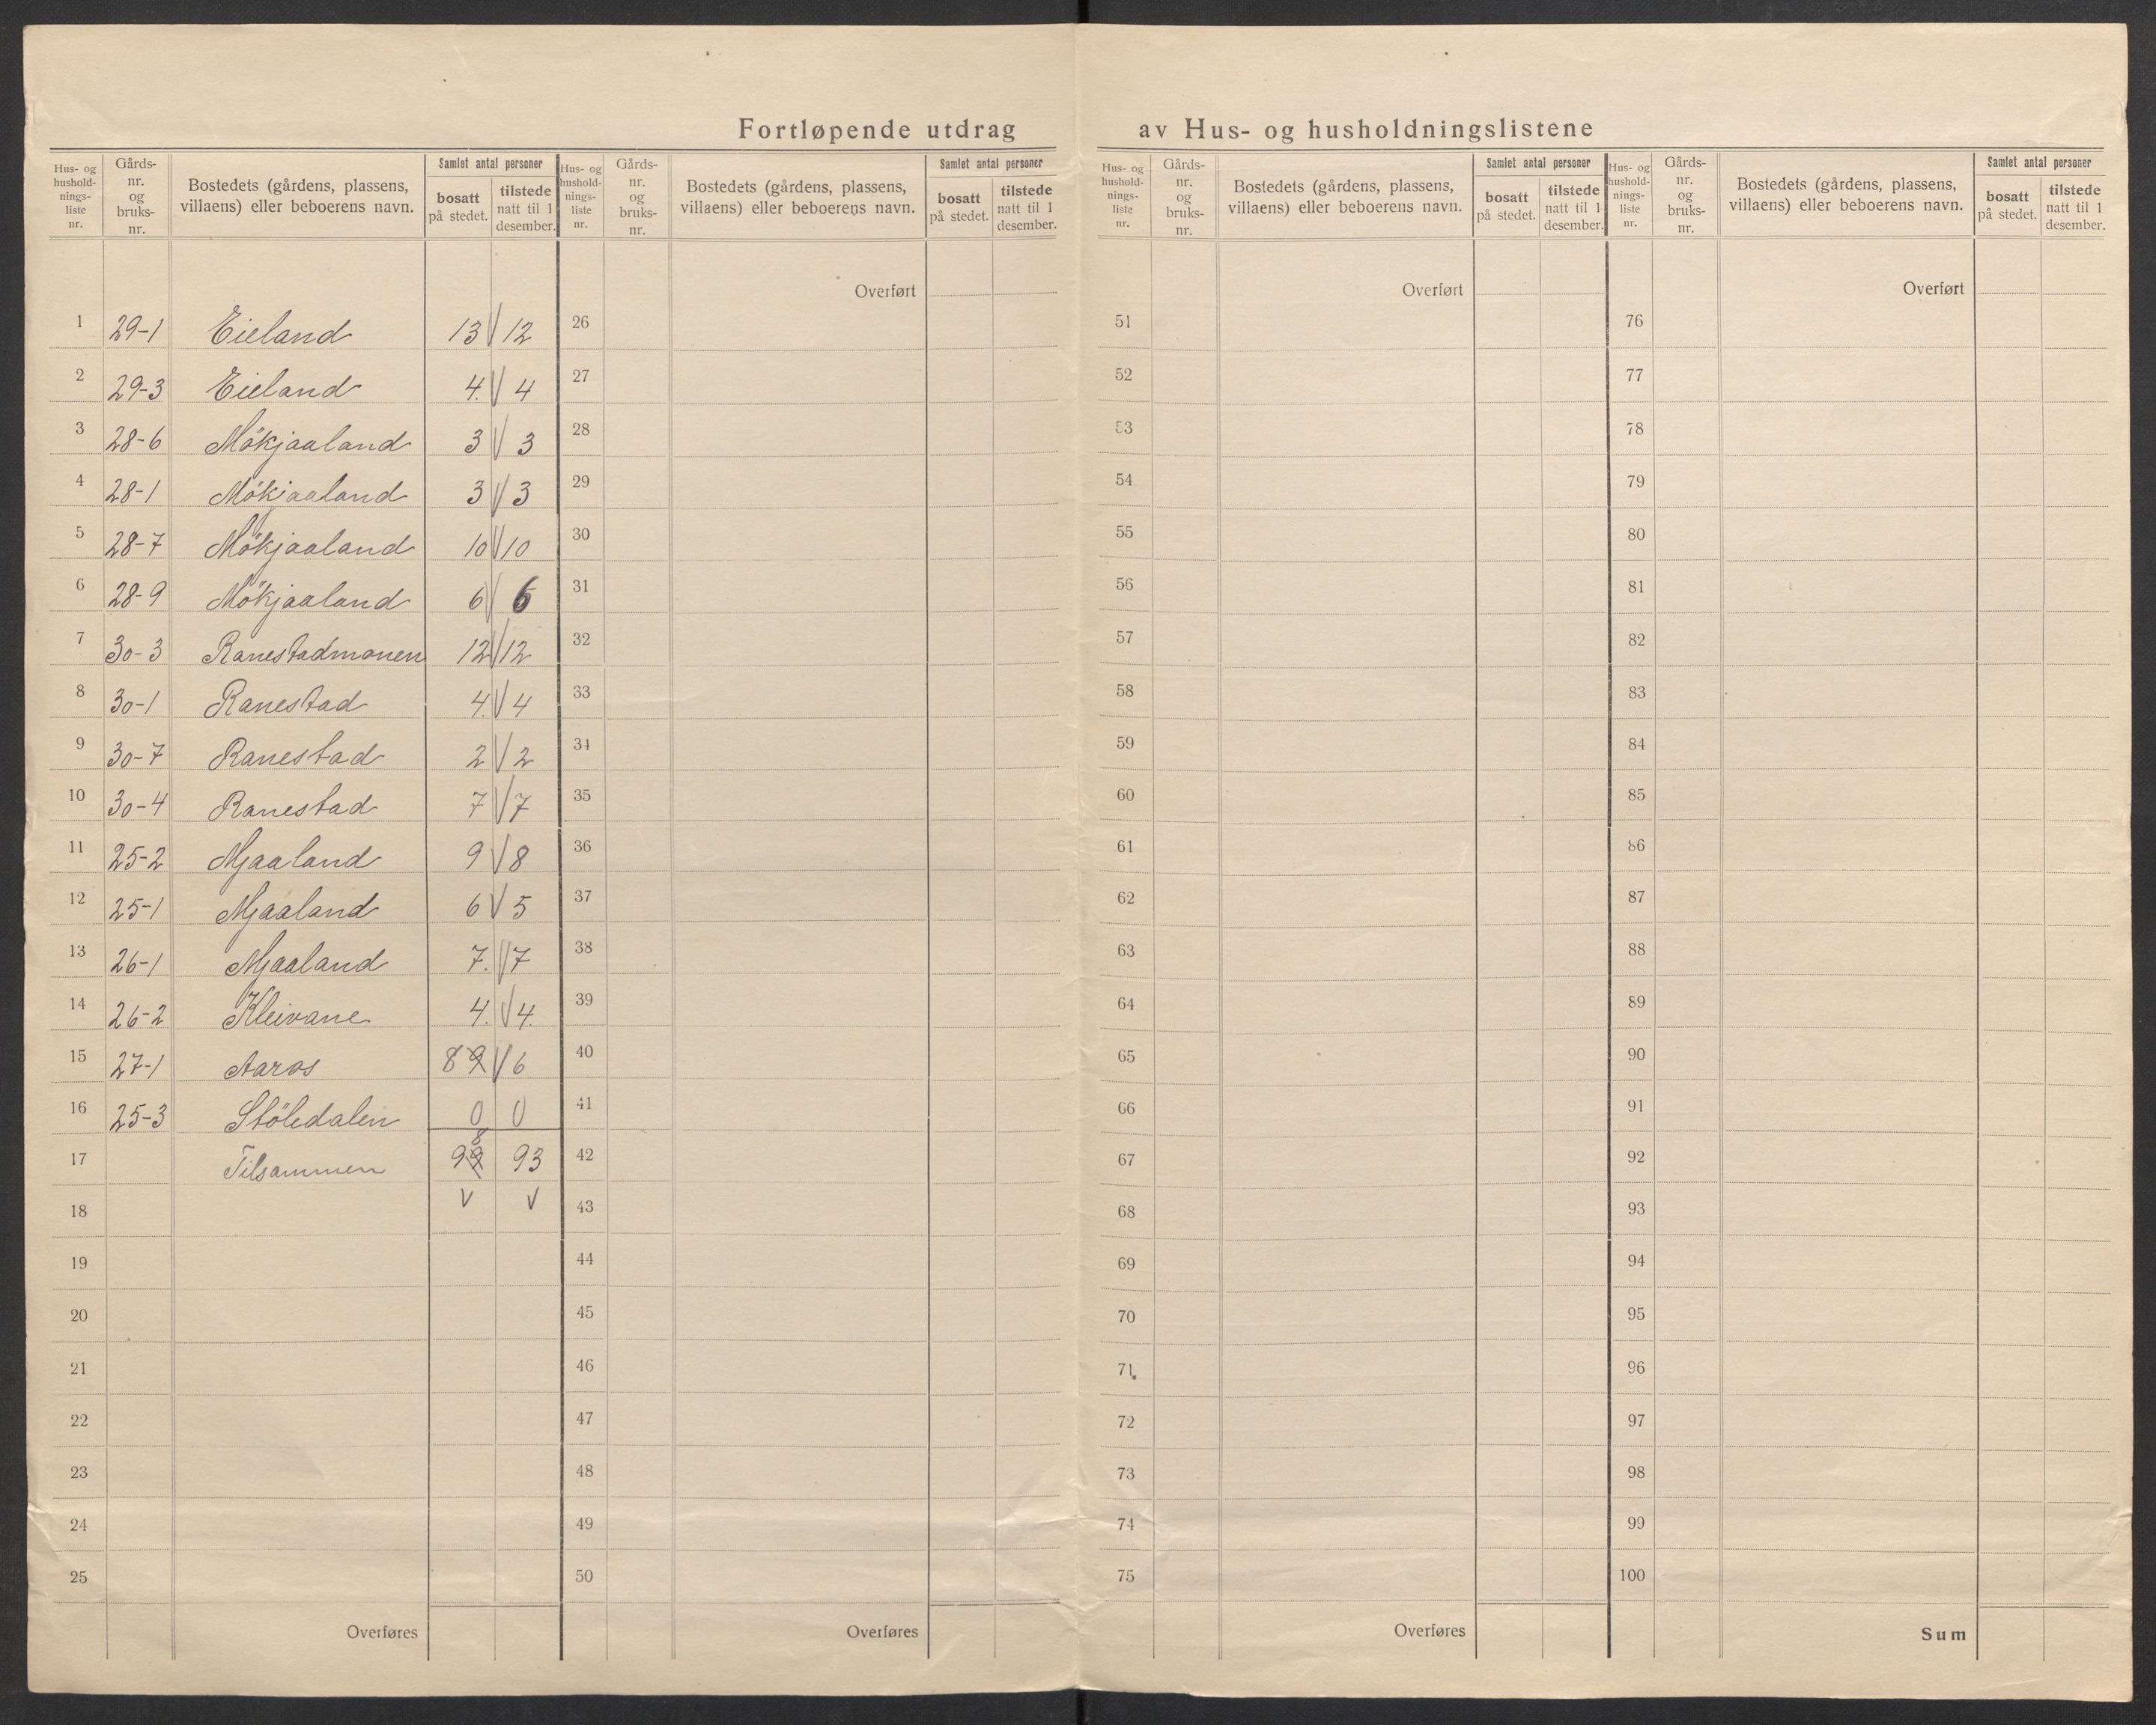 Fortløpende utdrag av Hus- og husholdningslistene
Hus- og husholdnings-liste nr. Gårds-nr. og bruks-nr. Bostedets (gårdens, plassens, villaens) eller beboerens navn. Samlet antal personer bosatt på stedet. tilstede natt til 1 desember.
1 29-1 Eieland 13 V 12
2 29-3 Eieland 4. V 4
3 28-6 Mökjaaland 3 V 3
4 28-1 Mökjaaland 3 V 3
5 28-7 Mökjaaland 10 V 10
6 28-9 Mökjaaland 6 V 6
7 30-3 Ranestadmonen 12 V 12
8 30-1 Ranestad 4. V 4
9 30-7 Ranestad 2 V 2
10 30-4 Ranestad 7 V 7
11 25-2 Mjaaland 9 V 8
12 25-1 Mjaaland 6 V 5
13 26-1 Mjaaland 7. V 7
14 26-2 Kleivane 4. V 4.
15 27-1 Aaros 8 9 V 6
16 25-3 Stöledalen 0 0
17 Tilsammen 99 8 93
18 V V
19
20
21
22
23
24
25
Overføres
Hus- og husholdnings-liste nr. Gårds-nr. og bruks-nr. Bostedets (gårdens, plassens, villaens) eller beboerens navn. Samlet antal personer bosatt på stedet. tilstede natt til 1 desember.
Overført
26
27
28
29
30
31
32
33
34
35
36
37
38
39
40
41
42
43
44
45
46
47
48
49
50
Overføres
Hus- og hushold-nings-liste nr. Gårds-nr. og bruks-nr. Bostedets (gårdens, plassens, villaens) eller beboerens navn. Samlet antal personer bosatt på stedet. tilstede natt til 1 desember.
Overført
51
52
53
54
55
56
57
58
59
60
61
62
63
64
65
66
67
68
69
70
71
72
73
74
75
Overføres
Hus- og hushold-nings-liste nr. Gårds-nr. og bruks-nr. Bostedets (gårdens, plassens, villaens) eller beboerens navn. Samlet antal personer bosatt på stedet. tilstede natt til 1 desember.
Overført
76
77
78
79
80
81
82
83
84
85
86
87
88
89
90
91
92
93
94
95
96
97
98
99
100
Sum